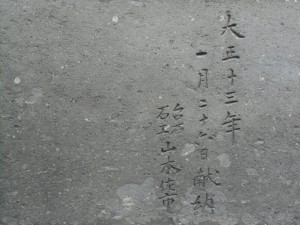 大正十三年
一月二十六日献納
石工山本佐市